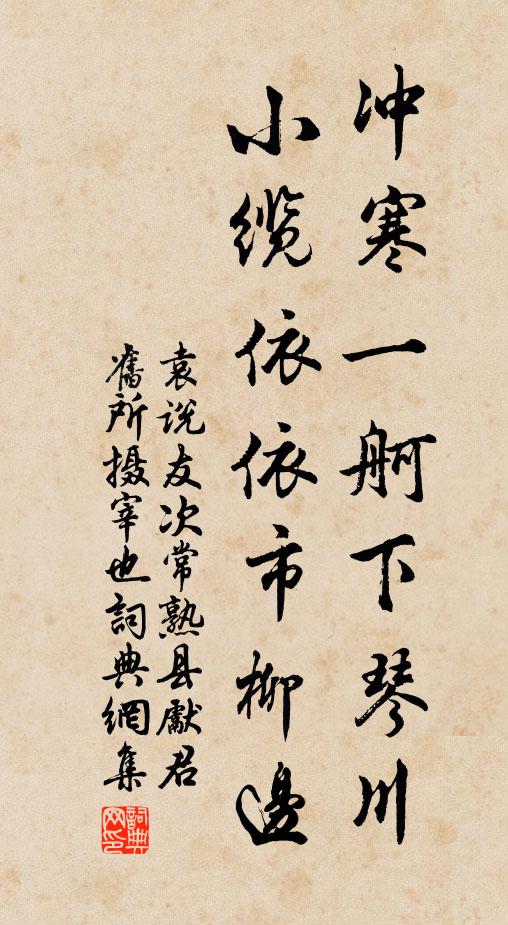 冲寒一舸下琴川
小缆依依市柳邊
袁说友次常熟县獻君
舊所摄宰也詞典網集
詞典网印